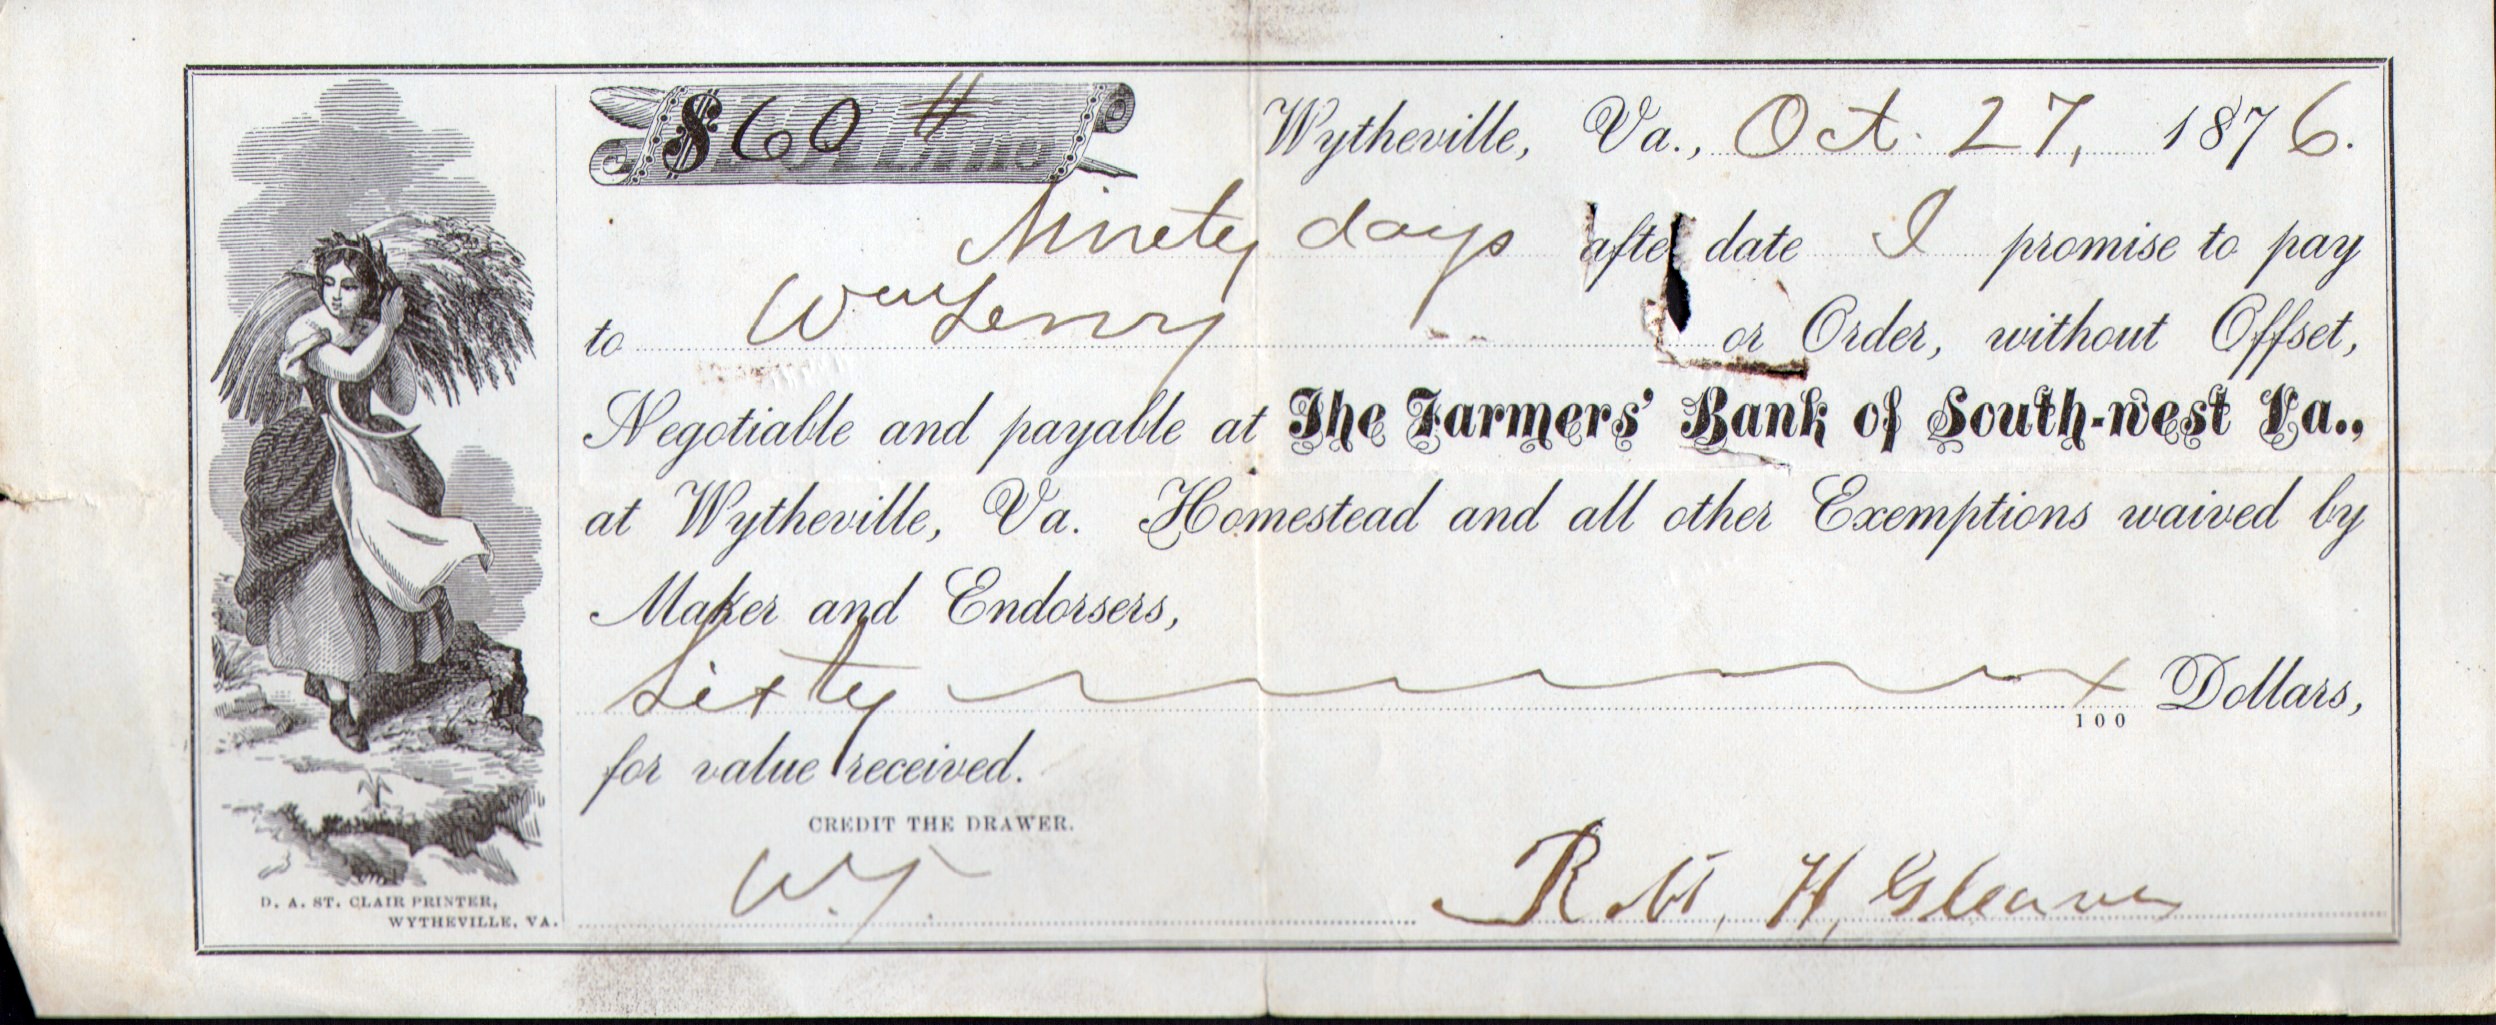 $60
Wytheville, Va., Oct. 27, 1876.
Ninety days after date I promise to pay
to Wm or Order, without Offset,
Negotiable and payable at The Farmers' Bank of South-west Va.,
at Wytheville, Va. Homestead and all other Exemptions waived by
Maker and Endorsers,
Sixty x/100 Dollars,
for value received.
CREDIT THE DRAWER.
Robt. H. Gleaves
D. A. ST. CLAIR PRINTER,
WYTHEVILLE, VA.